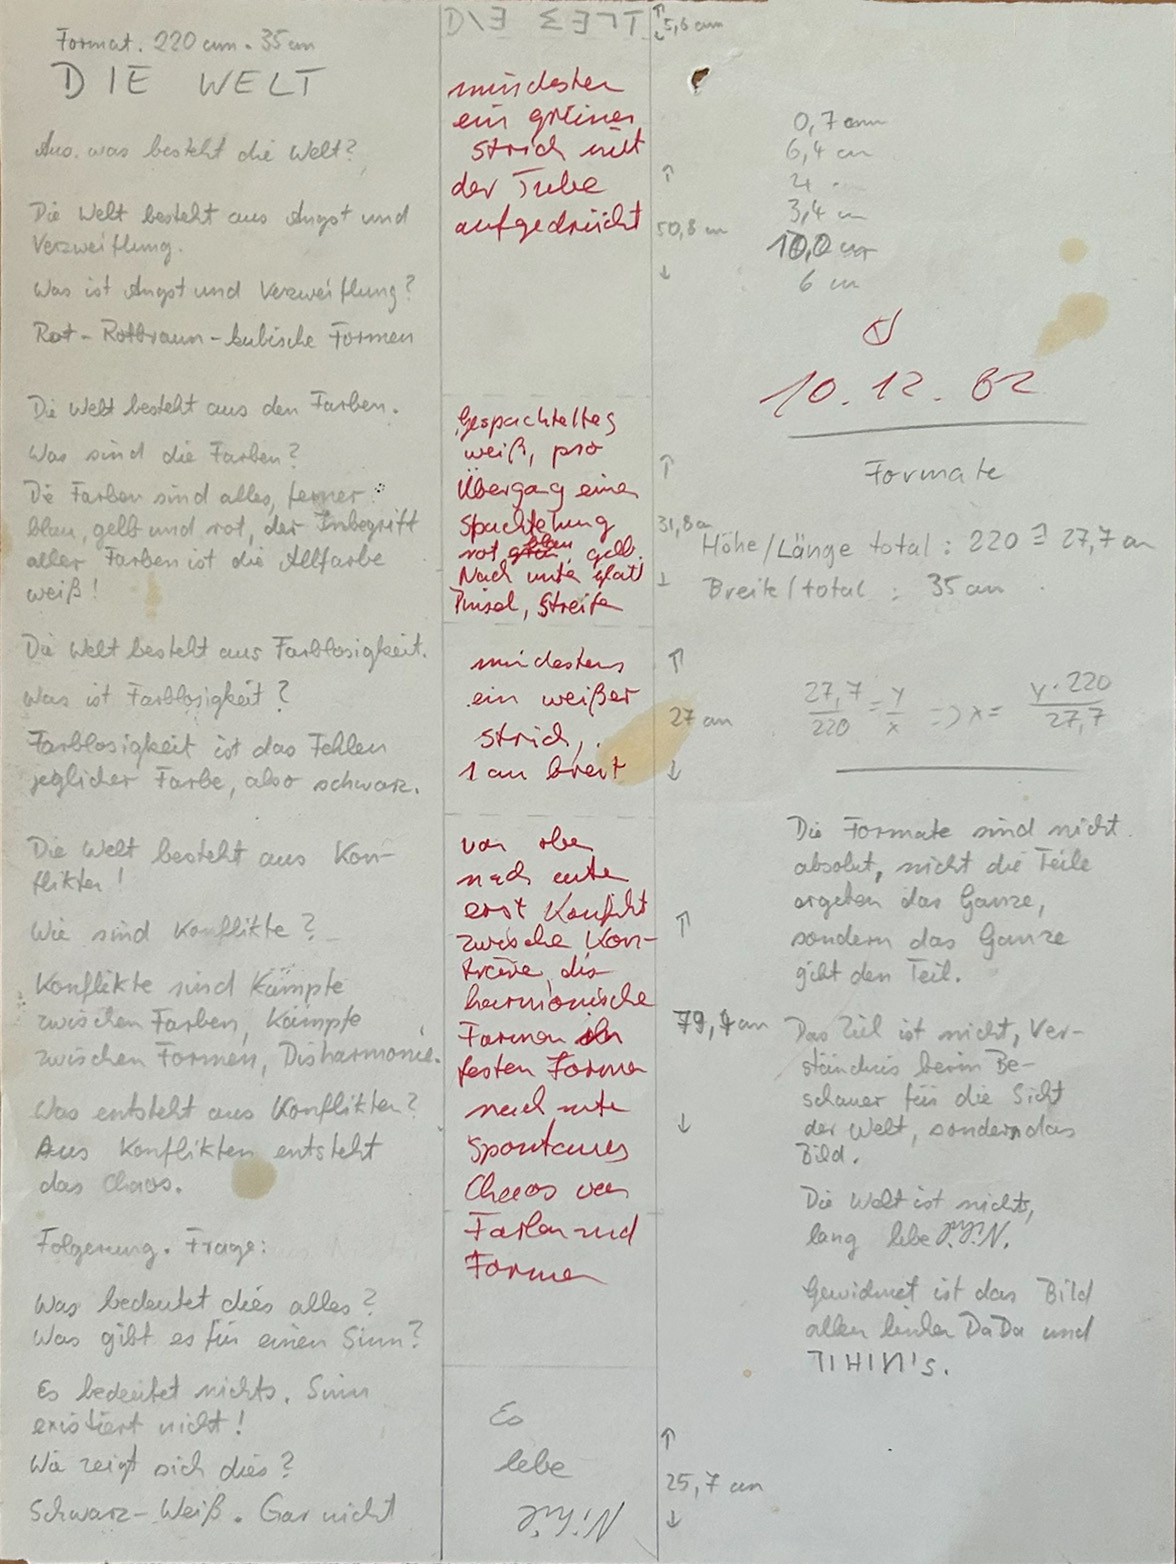 Format. 220 cm · 35 cm
DIE WELT
Aus was besteht die Welt?
Die Welt besteht aus Angst und
Verzweiflung.
Was ist Angst und Verzweiflung?
Rot - Rotbraun - kubische Formen
Die Welt besteht aus den Farben.
Was sind die Farben?
Die Farben sind alles, ferner:
blau, gelb und rot, der Inbegriff
aller Farben ist die Allfarbe
weiß!
Die Welt besteht aus Farblosigkeit.
Was ist Farblosigkeit?
Farblosigkeit ist das Fehlen
jeglicher Farbe, also schwarz.
Die Welt besteht aus Kon-
flikten!
Wie sind Konflikte?
Konflikte sind Kämpfe
zwischen Farben, Kämpfe
zwischen Formen, Disharmonie.
Was entsteht aus Konflikten?
Aus Konflikten entsteht
das Chaos.
Folgerung. Frage:
Was bedeutet dies alles?
Was gibt es für einen Sinn?
Es bedeutet nichts. Sinn
existiert nicht!
Wie zeigt sich dies?
Schwarz-Weiß. Gar nicht
DIE WELT
mindesten
ein grüner
Strich mit
der Tube
aufgedrückt
Gespachteltes
weiß, pro
Übergang einen
Spachtelung
rot blau gelb.
Nach unten glatt
Pinsel, Streifen
mindestens
ein weißer
Strich,
1 cm breit
von oben
nach unten
erst Konflikt
zwischen Kon-
träre, dis-
harmonische
Farben
festen Formen
nach unten
spontanes
Chaos von
Farben und
Formen
Es
lebe
Nihil
↑ 5,6 cm ↓
↑
50,8 cm
↓
↑
31,8 cm
↓
↑
27 cm
↓
↑
79,1 cm
↓
↑
25,7 cm
↓
0,7 cm
6,4 cm
4
3,4 cm
10,0 cm
6 cm
10.12.82
Formate
Höhe/Länge total: 220 ≙ 27,7 cm
Breite/total: 35 cm
27,7/220 = y/x => x = y·220/27,7
Die Formate sind nicht
absolut, nicht die Teile
ergeben das Ganze,
sondern das Ganze
gibt den Teil.
Das Ziel ist nicht, Ver-
ständnis beim Be-
schauer für die Sicht
der Welt, sondern das
Bild.
Die Welt ist nichts,
lang lebe
Gewidmet ist das Bild
allen DaDa und